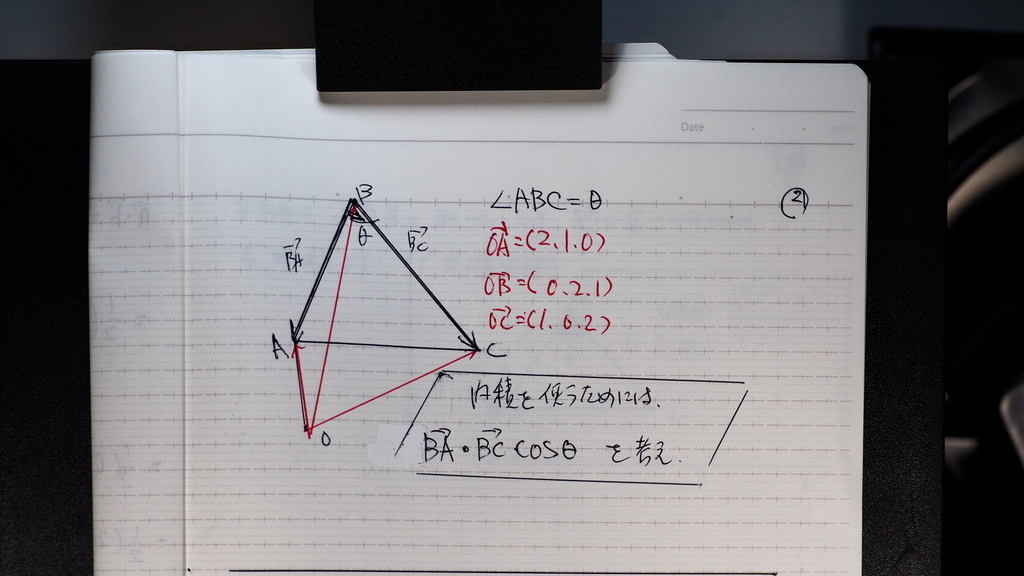 Date
(2)
B
∠ABC=θ
θ
BA→
BC→
OA→=(2.1.0)
OB→=(0.2.1)
OC→=(1.0.2)
A
C
O
内積を使うためには、
BA→・BC→ cosθ を考え.